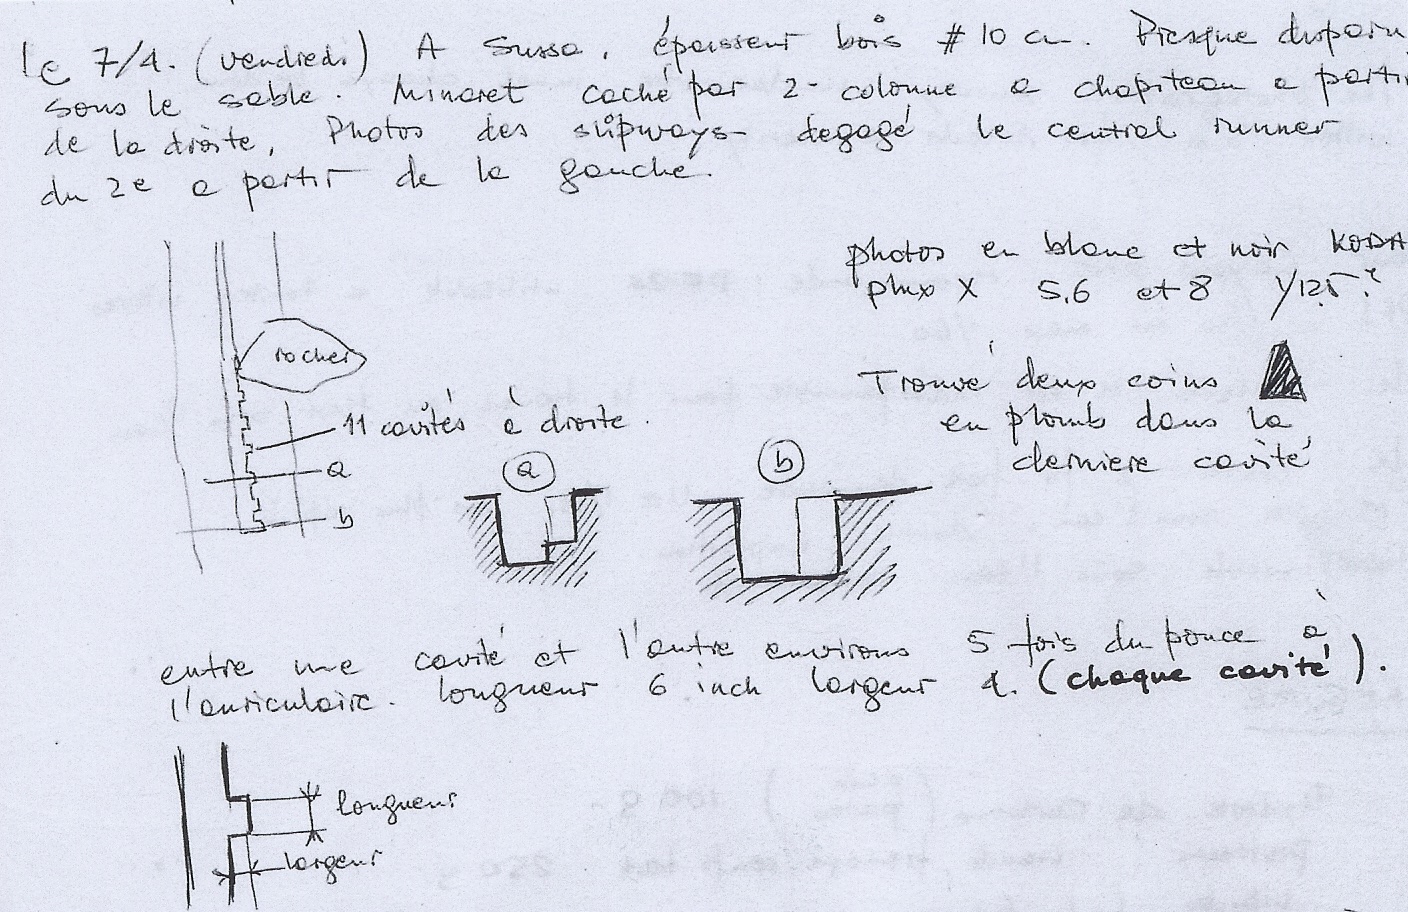 le 7/4. (vendredi) A Sussa, épaisseur bois # 10 cm. Presque disparu
sous le sable. Minaret caché par 2e colonne a chapiteau a partir
de la droite. Photos des slipways dégagé le central runner
du 2e a partir de la gauche.
photos en blanc et noir KODA
plux X 5,6 et 8 1/125
rocher
Trouvé deux coins
en plomb dans la
derniere cavité
11 cavités à droite.
a
b
a
b
entre une cavité et l'autre environs 5 fois du pouce à
l'auriculaire. longueur 6 inch largeur 4. (chaque cavité).
longueur
largeur